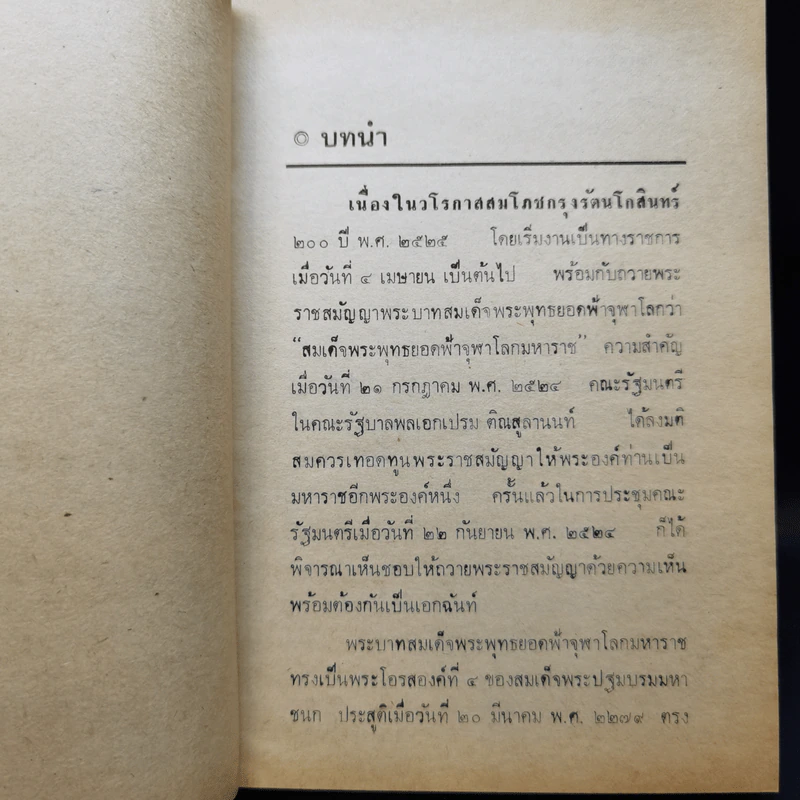 ◎ บทนำ
เนื่องในวโรกาสสมโภชกรุงรัตนโกสินทร์
๒๐๐ ปี พ.ศ. ๒๕๒๕ โดยเริ่มงานเป็นทางราชการ
เมื่อวันที่ ๔ เมษายน เป็นต้นไป พร้อมกับถวายพระ
ราชสมัญญาพระบาทสมเด็จพระพุทธยอดฟ้าจุฬาโลกว่า
“สมเด็จพระพุทธยอดฟ้าจุฬาโลกมหาราช” ความสำคัญ
เมื่อวันที่ ๒๑ กรกฎาคม พ.ศ. ๒๕๒๔ คณะรัฐมนตรี
ในคณะรัฐบาลพลเอกเปรม ติณสูลานนท์ ได้ลงมติ
สมควรเทอดทูนพระราชสมัญญาให้พระองค์ท่านเป็น
มหาราชอีกพระองค์หนึ่ง ครั้นแล้วในการประชุมคณะ
รัฐมนตรีเมื่อวันที่ ๒๒ กันยายน พ.ศ. ๒๕๒๔ ก็ได้
พิจารณาเห็นชอบให้ถวายพระราชสมัญญาด้วยความเห็น
พร้อมต้องกันเป็นเอกฉันท์
พระบาทสมเด็จพระพุทธยอดฟ้าจุฬาโลกมหาราช
ทรงเป็นพระโอรสองค์ที่ ๔ ของสมเด็จพระปฐมบรมมหา
ชนก ประสูติเมื่อวันที่ ๒๐ มีนาคม พ.ศ. ๒๒๗๙ ตรง